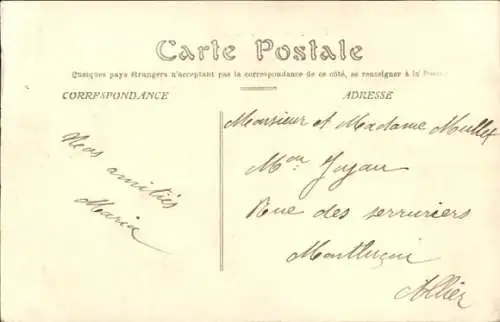 Carte Postale
Quelques pays étrangers n'acceptant pas la correspondance de ce côté, se renseigner à la Poste
CORRESPONDANCE
ADRESSE
Nos amitiés
Maria
Monsieur et Madame Mullet
Mon
Rue des serruriers
Montluçon
Allier